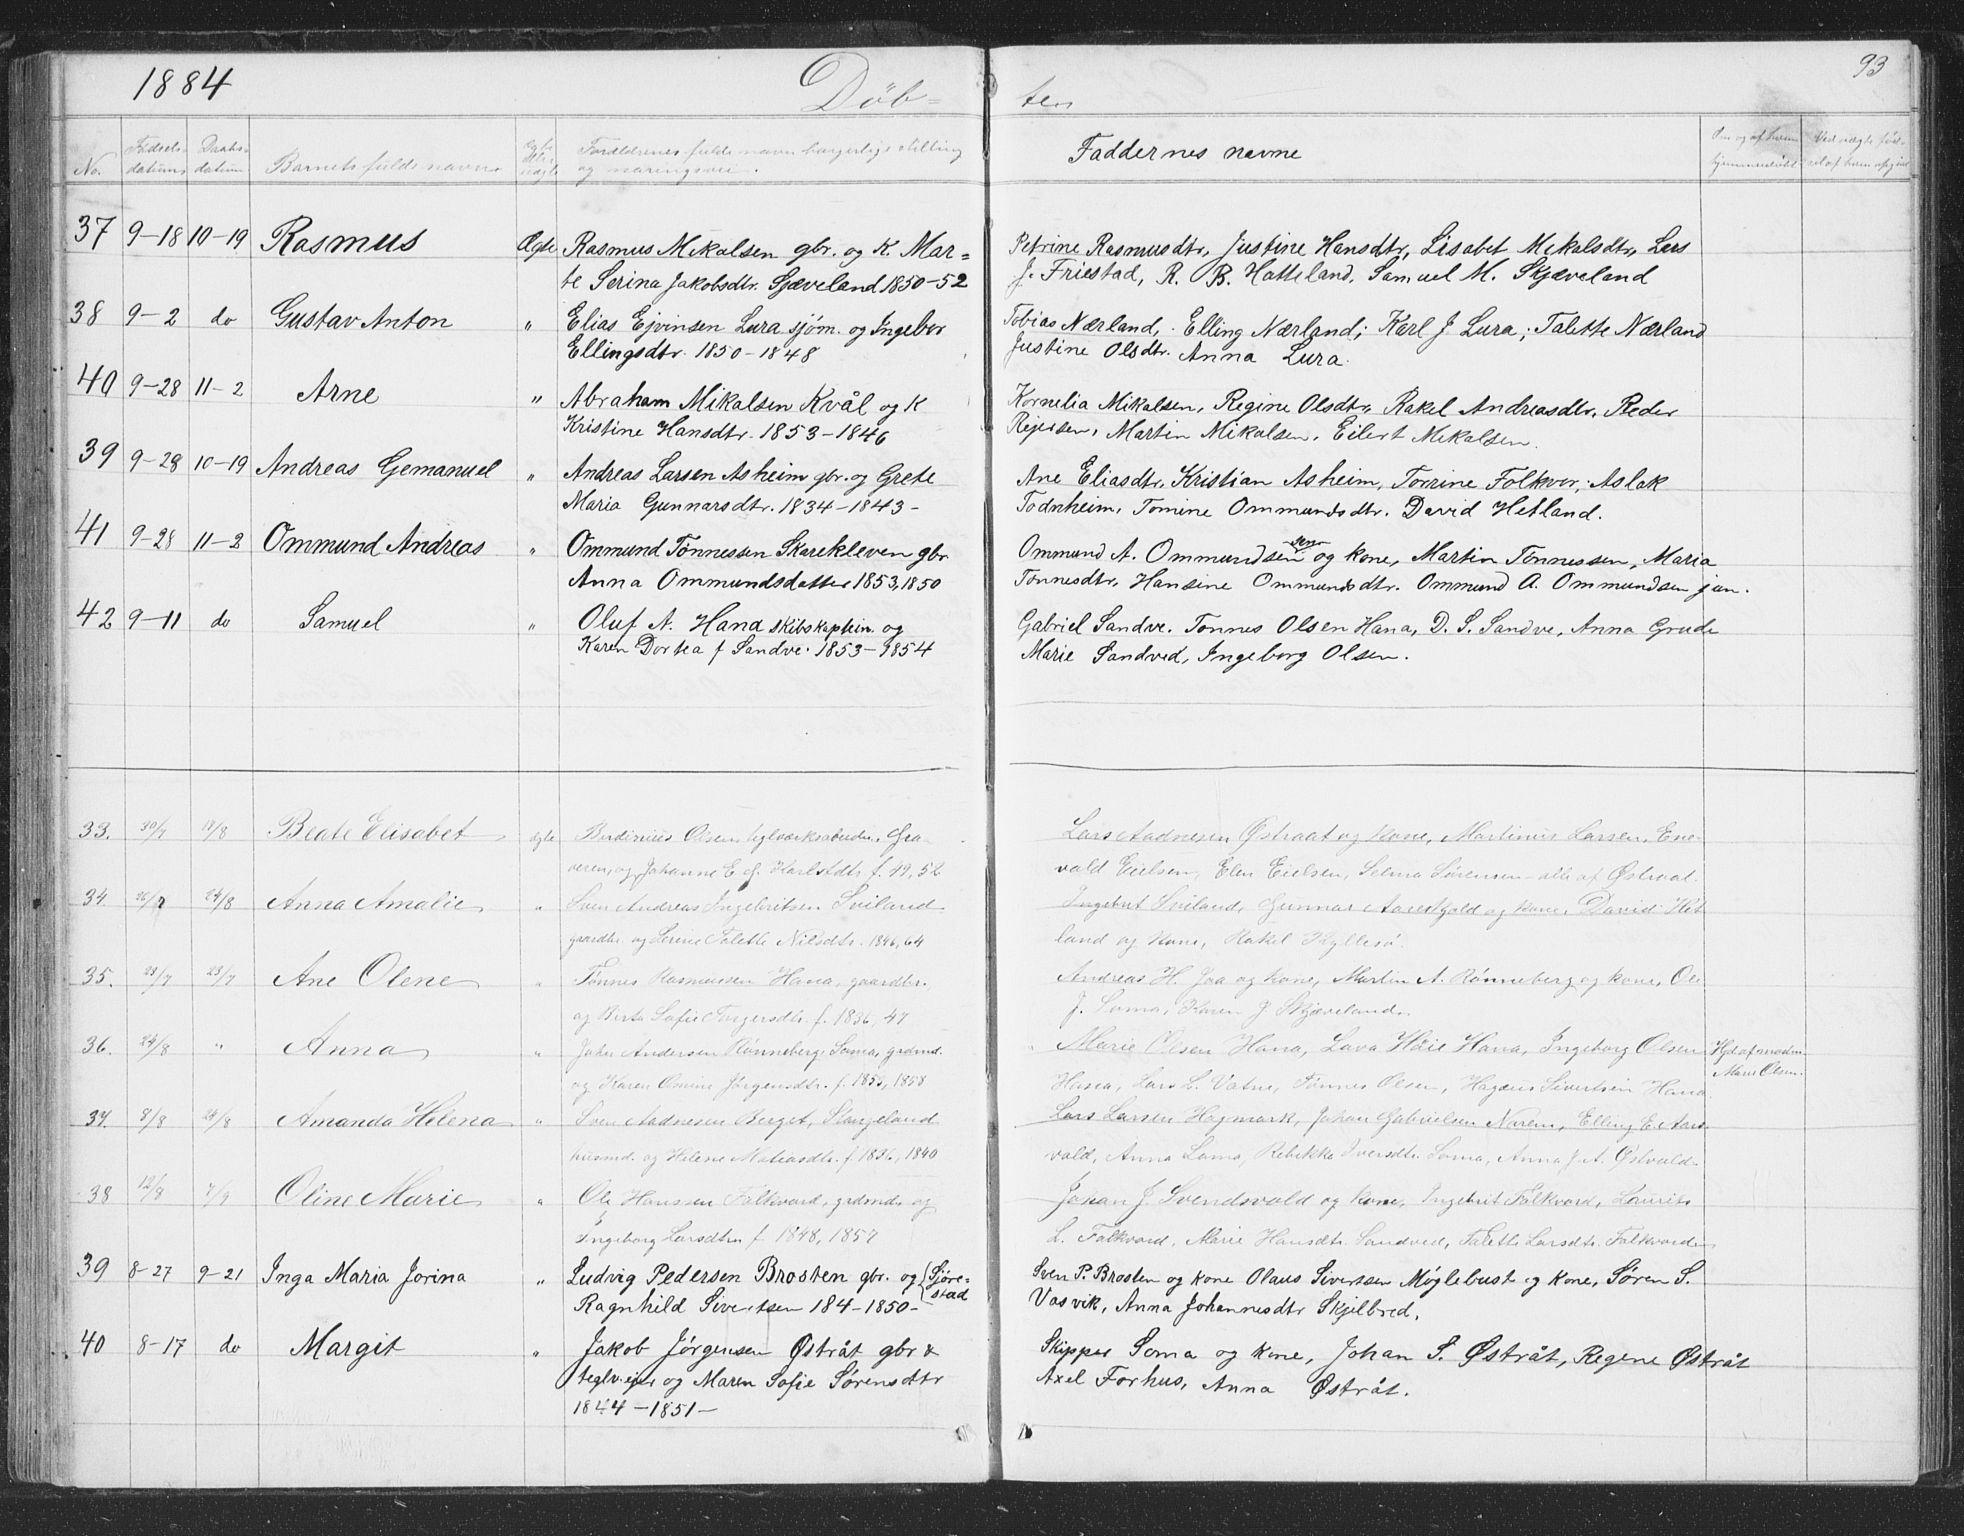 1884 Døb- ter 93
No. Fødsels- datum Daabs- datum Barnets fulde navn. Forældrenes fulde navn borgerlige stilling og næringsvei. Faddernes navne
37 9-18 10-19 Rasmus Ægte Rasmus Mikalsen gbr. og K. Mar= Petrine Rasmusdtr, Justine Hansdtr, Lisabet Mikalsdtr, Lars
te Serina Jakobsdtr. Sjæveland 1850-52 J. Friestad, R. B. Hatteland, Samuel M. Skjæveland
38 9-2 do Gustav Anton " Elias Ejvinsen Lura sjøm. og Ingebor Tobias Nærland, Elling Nærland; Karl J. Lura; Talette Nærland
Ellingsdtr. 1850-1848 Justine Olsdtr. Anna Lura.
40 9-28 11-2 Arne " Abraham Mikalsen Kvål og K Kornelia Mikalsen, Regine Olsdtr, Rakel Andreasdtr. Reder
Kristine Hansdtr. 1853-1846 Rejersen, Martin Mikalsen, Eilert Mikalsen.
39 9-28 10-19 Andreas Gemanuel " Andreas Larsen Asheim gbr. og Grete Ane Eliasdtr, Kristian Asheim, Torrine Folkvor, Aslak
Maria Gunnarsdtr. 1834-1843- Todnheim, Tomine Ommundsdtr. David Hetland.
41 9-28 11-2 Ommund Andreas " Ommund Tønnessen Skarekleven gbr Ommund A. Ommundsen sen og kone, Martin Tønnessen, Maria
Anna Ommundsdatter 1853,1850 Tønnesdtr, Hansine Ommundsdtr. Ommund A. Ommundsen jun.
42 9-11 do Samuel " Oluf A. Hana skibskaptein. og Gabriel Sandve. Tønnes Olsen Hana, D. S. Sandve, Anna Grude
Karen Dortea f Sandve. 1853-1854 Marie Sandved, Ingeborg Olsen.
33. 30/7 Beate Elisabet ægte Berdinius Olsen, teglværksarbeider, Gra- Lars Aadnesen Østraat og kone, Martinus Larsen, Ene-
veren, og Johanne E. Karlsdtr f. 49, 52 vald Eielsen, Elen Eielsen, Selma Sørensen - alle af Østraat.
34 24/8 Anna Amalie " Sven Andreas Ingebritsen Sviland Ingebrit Sviland, Gunnar Aarestjold og kone, David Het-
gaardbr. og Serine Talette Nilsdtr. 1846, 64 land og kone, Rakel Kyllesø.
35. 23/7 Ane Olene " Tønnes Rasmussen Hana, gaardbr. Andreas H. Joa og kone, Martin A. Rønneberg og kone, Ole
og Berta Sofie Torgersdtr. f. 1836, 47 J. Soma, Karen J. Skjæveland.
36. 24/8 " Anna " John Andersen Rønneberg, Soma, grdmd. Marie Olsen Hana, Lava Høie Hana, Ingeborg Olsen
og Karen Osmine Jørgensdtr. f. 1858 Hana, Lars L. Vatne, Tønnes Olsen, Sivertsen Hana. Marie Olsen.
37. 8/8 24/8 Amanda Helena " Sven Aadnesen Berget, Stangeland Lars Larsen Hagmark, Johan Gabrielsen Norem, Elling E. Aars-
husmd. og Helene Mateasdtr. f. 1836, 1840 vold, Anna Soma, Rebekka Iversdtr. Soma, Anna J. A. Østvold.
38 12/8 7/9 Oline Marie " Ole Hanssen Falkvard, grdmd. og Johan J. Svendsvold og kone, Ingebrit Falkvard, Laurits
Ingeborg Larsdtr. f. 1848, 1857 L. Falkvard, Marie Hansdtr. Sandved, Talette Larsdtr. Falkvarden
39 8-27 9-21 Inga Maria Jorina " Ludvig Pedersen Brosten gbr. og (Sjøre- Sven P. Brosten og kone Olaus Sivertsen Møglebust og kone, Søren S.
stad Ragnhild Sivertsen 184-1850- Vasvik, Anna Johannesdtr Skjelbred.
40 8-17 do Margit " Jakob Jørgensen Østråt gbr & Skipper Soma og kone, Johan S. Østråt, Regene Østråt
teglv.ejer og Maren Sofie Sørensdtr Axel Forhus, Anna Østråt.
1844-1851-